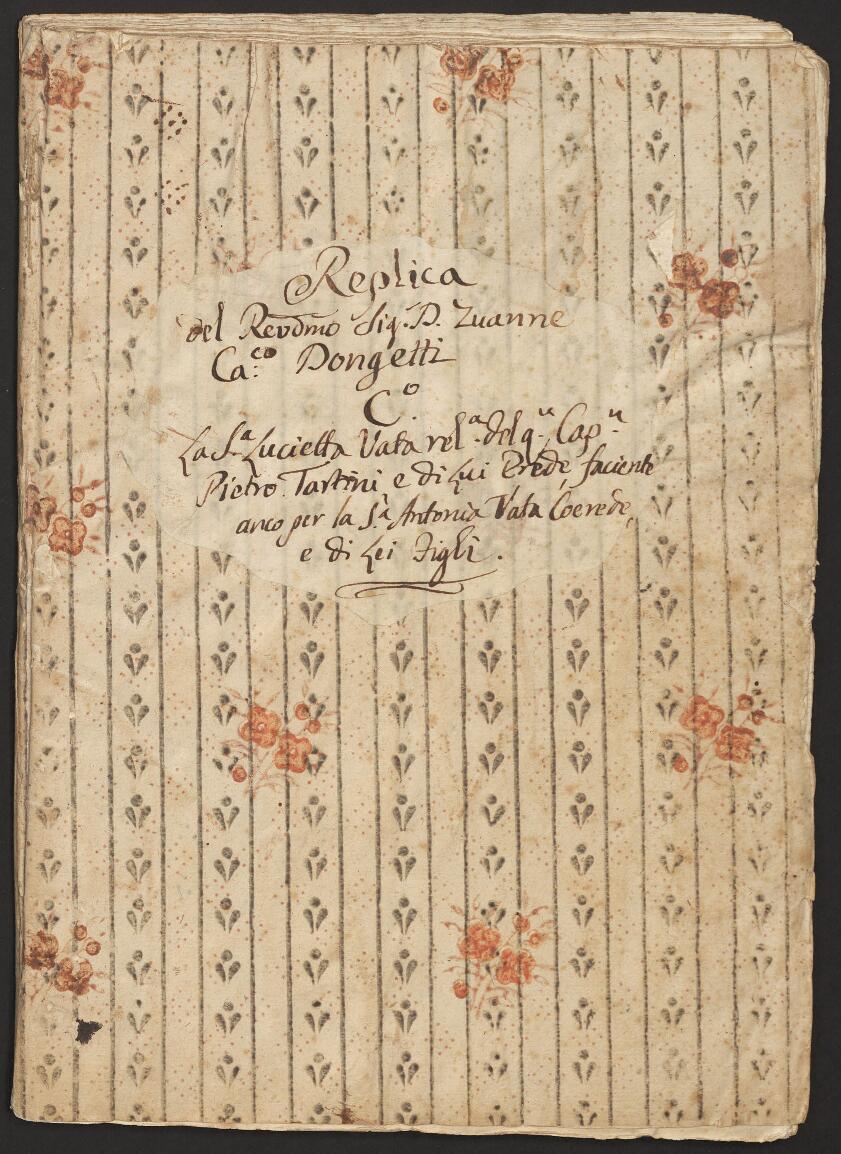 Replica
del Revdmo Sig.r D. Zuanne
Ca:co Dongetti
C.o
La S.a Lucietta Vata rel.a del q.m Cap.n
Pietro Tartini e di Lui Erede, faciente
anco per la S.a Antonia Vata Coerede,
e di Lei Figli.